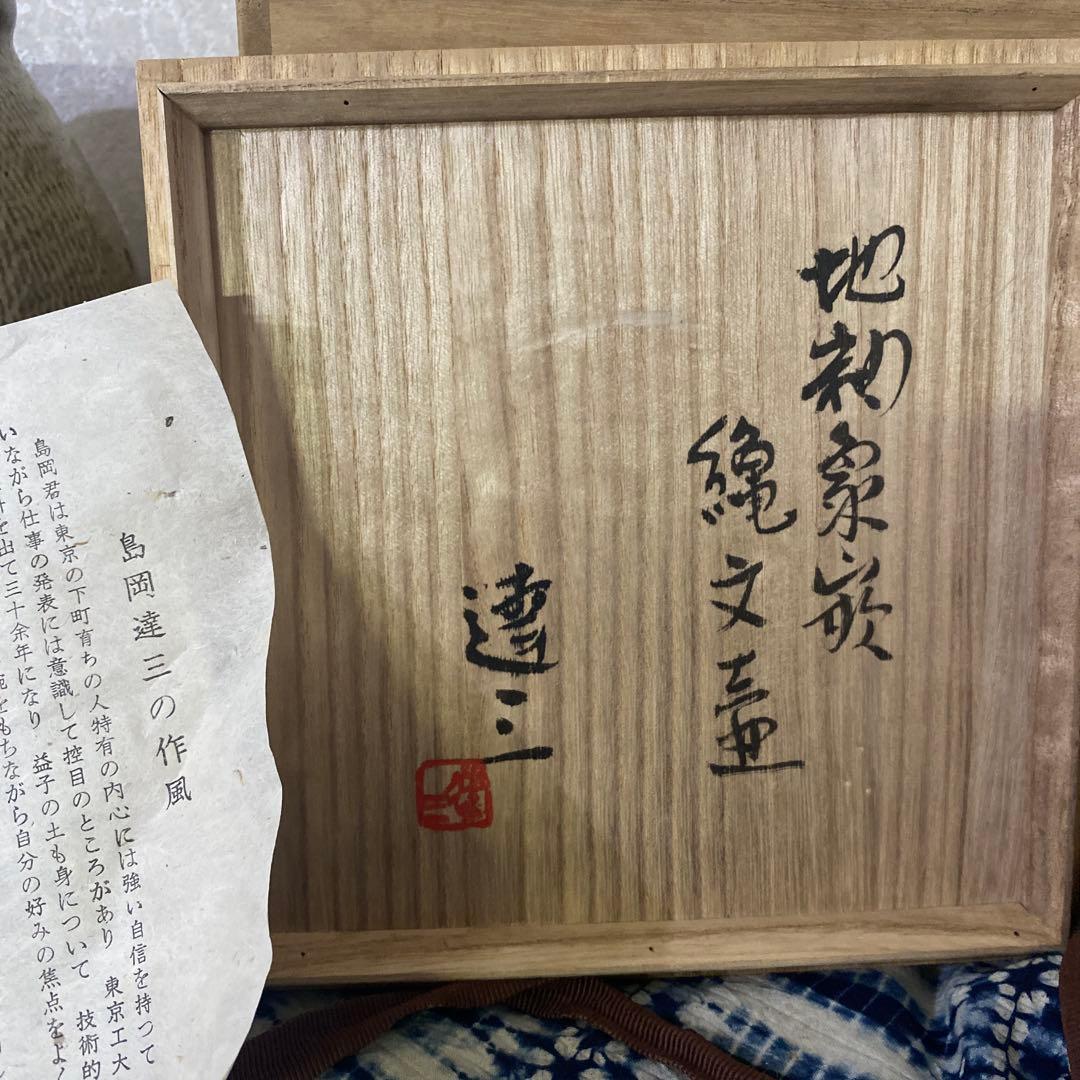 地釉象嵌
縄文壷
達三
島岡達三の作風
島岡君は東京の下町育ちの人特有の内心には強い自信を持つて
いながら仕事の発表には意識して控目のところがあり 東京工大
を出て三十余年になり 益子の土も身について 技術的
をもちながら自分の好みの焦点をよく